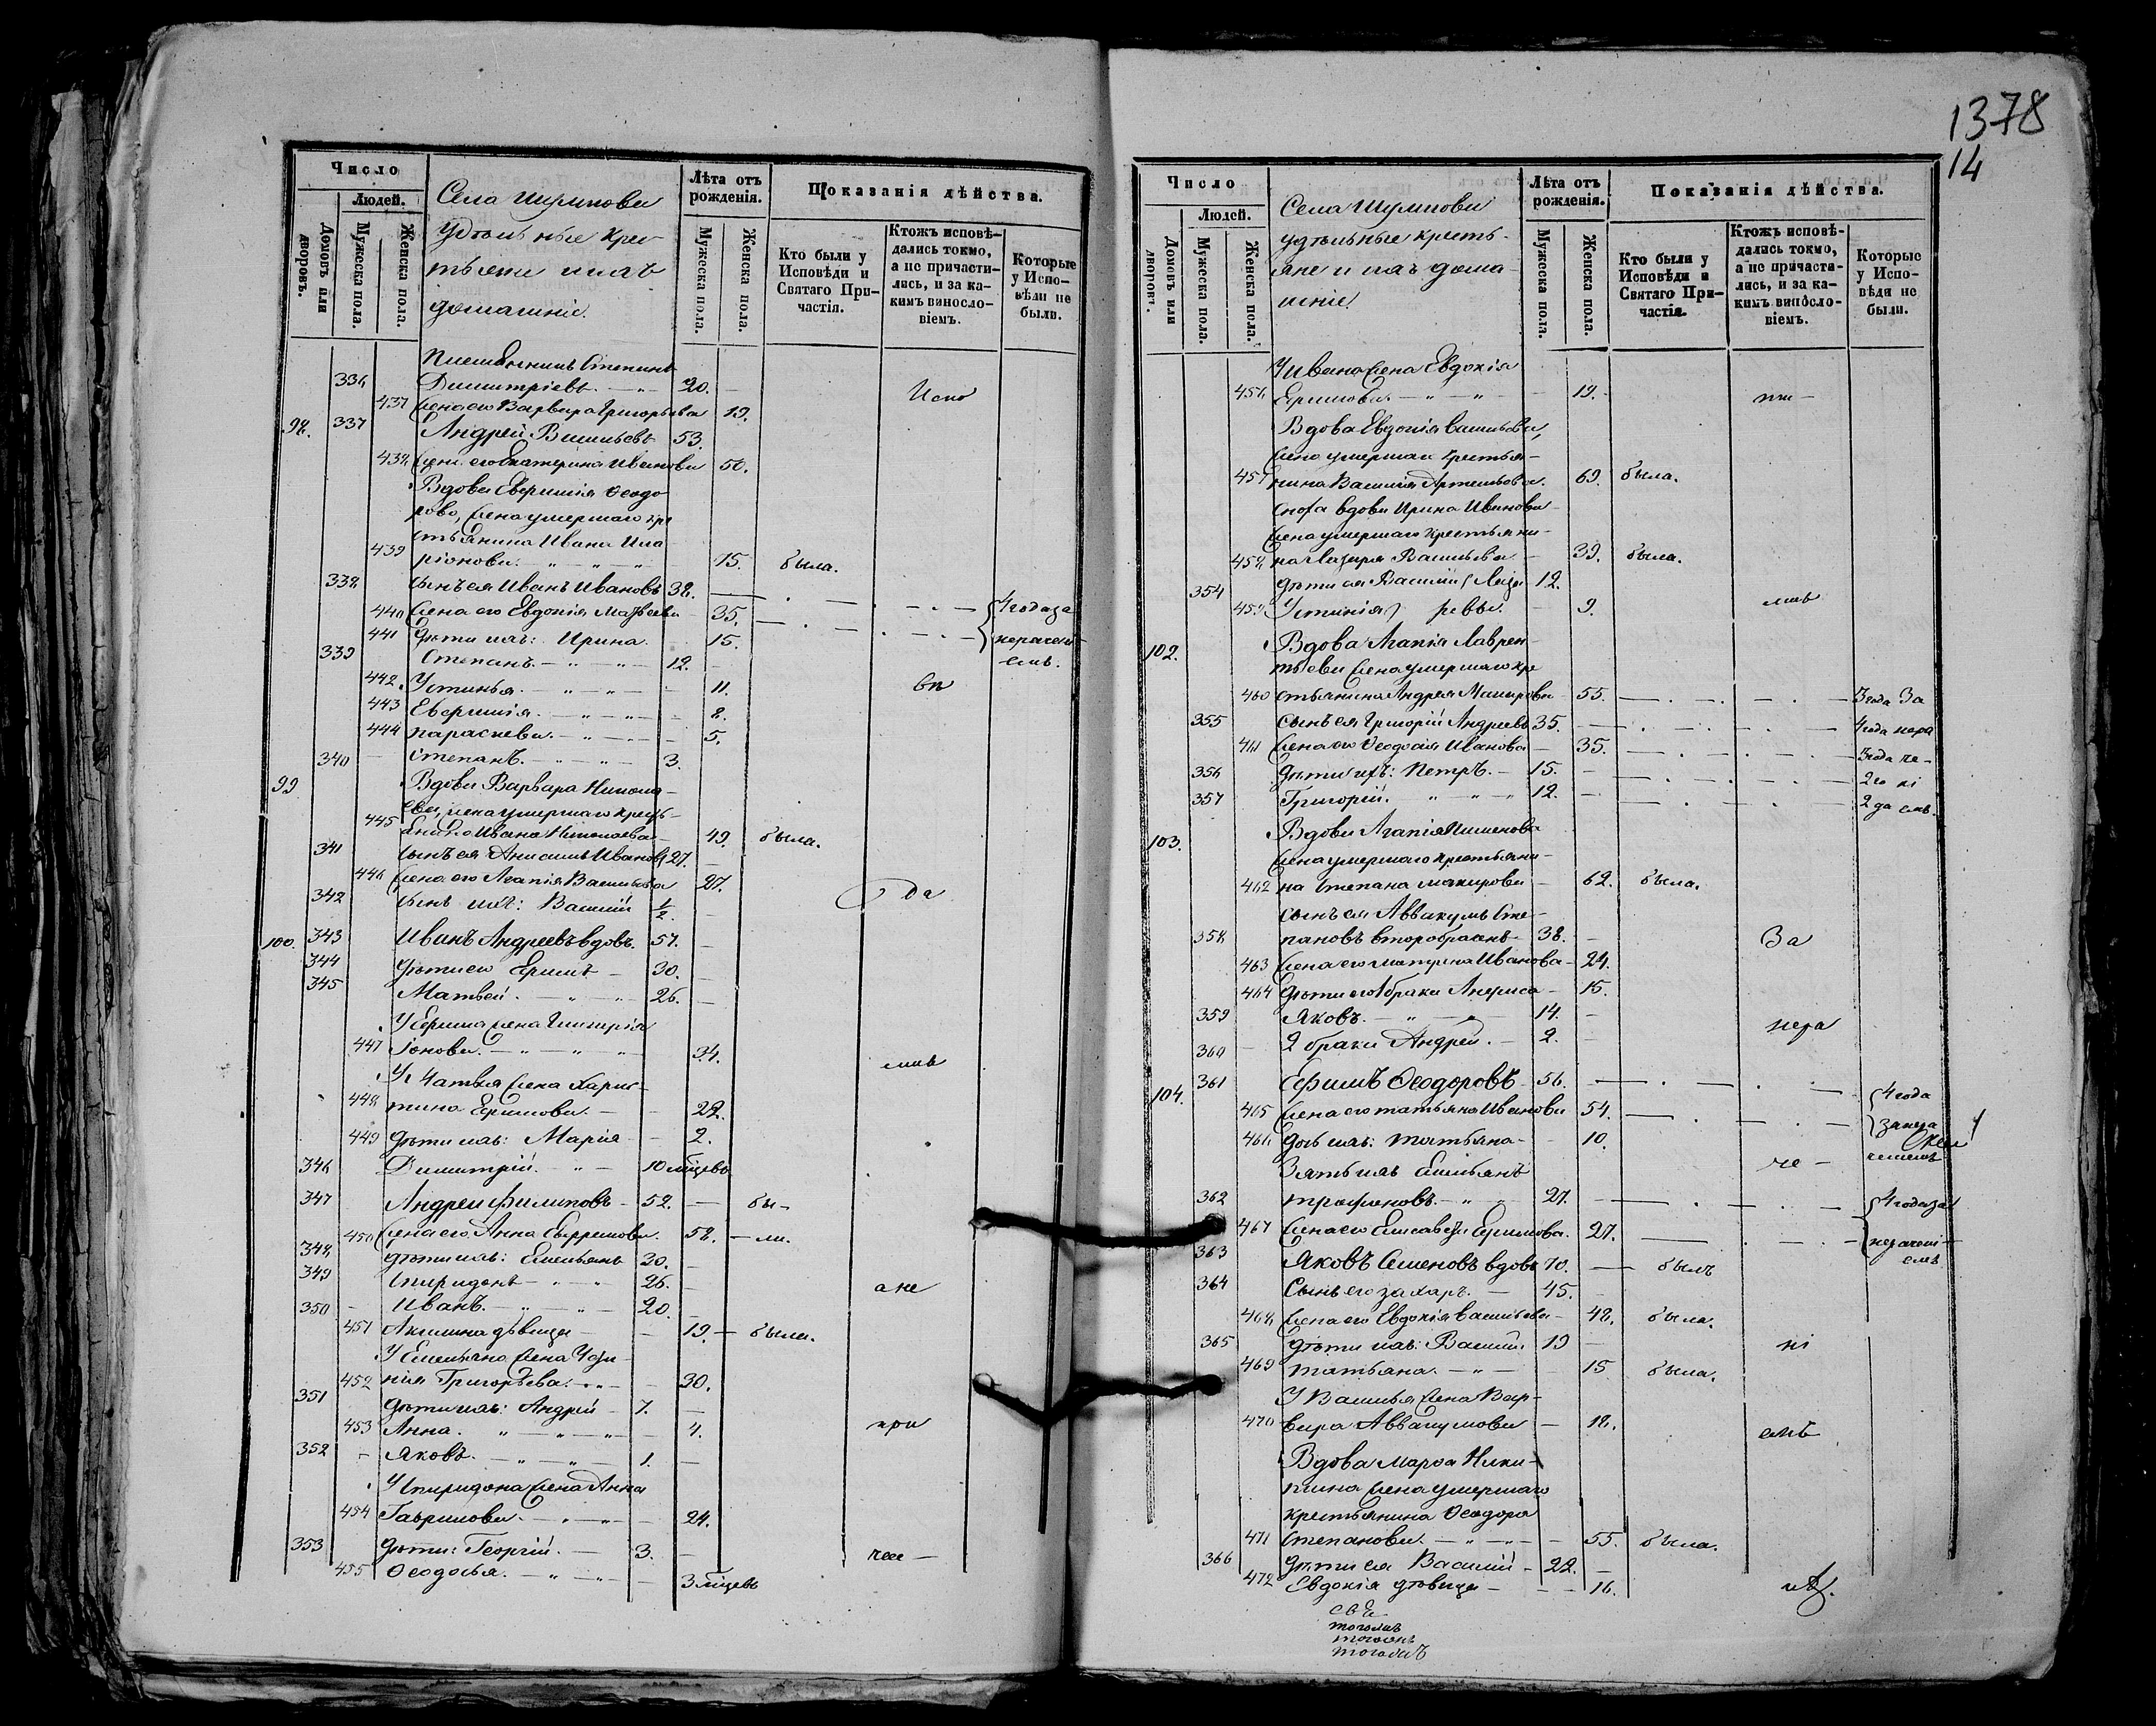 1378
14
Число
Людей.
Домовъ или дворовъ.
Мужеска пола.
Женска пола.
Села Шумпова
удѣльные крес-
тьяне и ихъ
домашніе.
Лѣта отъ рожденія.
Мужеска пола.
Женска пола.
Показанія дѣйства.
Кто были у Исповѣди и Святаго При-частія.
Ктожъ исповѣ-дались токмо, а не причасти-лись, и за ка-кимъ винosло-віемъ.
Которые у Испо-вѣди не были.
Племянникъ Степанъ
336 Димитріевъ. 20. Испо
437 Жена его Варвара Григорьева 19.
98. 337 Андрей Васильевъ 53.
438 Жена его Екатерина Иванова 50.
Вдова Евфимія Ѳеодо-
рова, жена умершаго кре
стьянина Ивана Ила-
439 ріонова. 75. была.
338 Сынъ ея Иванъ Ивановъ 38. 4 года за
440 Жена его Евдокія Матвѣева 35.
441 Дѣти ихъ: Ирина. 15. нераченi-
339 Степанъ. 12. емъ.
442 Устинья. 11. вѣ
443 Евфимія. 8.
444 Параскева. 5.
340 Степанъ. 3.
99 Вдова Варвара Никола-
ева, жена умершаго кресть-
445 янина Ивана Николаева 49. была.
341 Сынъ ея Анисимъ Ивановъ 27.
446 Жена его Агапія Васильева 27. да
342 Сынъ ихъ: Василій 1/2.
100. 343 Иванъ Андреевъ вдовъ. 57.
344 Дѣти его Ефимъ 30.
345 Матвей. 26.
У Ефима жена Гликерія
447 Іонова. 34. лись
У Матвея жена Харис-
448 тина Ефимова. 28.
449 Дѣти ихъ: Марія 2.
346 Димитрій. 10 мѣсцевъ
347 Андрей Филиповъ 52. бы-
450 Жена его Анна Евфремова. 58. ли.
348 Дѣти ихъ: Емельянъ 30.
349 Спиридонъ 26. а не
350 Иванъ. 20
451 Акилина дѣвица 19. была.
У Емельяна жена
452 нія Григорьева. 30.
351 Дѣти ихъ: Андрей 7.
453 Анна. 4. при
352 Яковъ. 1.
У Спиридона жена Анна
454 Гаврилова. 24.
353 Дѣти: Георгій. 3. час-
455 Ѳеодосья. 3 мѣсцевъ
Число
Людей.
Домовъ или дворовъ.
Мужеска пола.
Женска пола.
Села Шумпова
удѣльные кресть-
яне и ихъ дома-
шніе
Лѣта отъ рожденія.
Мужеска пола.
Женска пола.
Показанія дѣйства.
Кто были у Исповѣди и Святаго При-частія.
Ктожъ исповѣ-дались токмо, а не причасти-лись, и за ка-кимъ винoсло-віемъ.
Которые у Испо-вѣди не были.
У Ивана жена Евдокія
456 Ефимова. 19. ти-
Вдова Евдокія Васильева,
жена умершаго крестья-
457 нина Василія Артемьева. 69. была.
Сноха вдова Ирина Иванова
жена умершаго крестьяни-
458 на Лазаря Васильева. 39. была.
354 Дѣти ея Василій Лаза- 12.
459 Устинія ревы. 9. лись
102. Вдова Агапія Лаврен-
тьева жена умершаго кре
460 стьянина Андрея Макарова 55. 3 года за
355 Сынъ ея Григорій Андреевъ 35. 4 года нера
461 Жена его Ѳеодосія Иванова 35. 3 года че-
356 Дѣти ихъ: Петръ. 15. 2 го ні
357 Григорій. 12. 2 да емъ.
103. Вдова Агапія Пименова
жена умершаго крестьяни-
462 на Степана Макарова 62. была.
Сынъ ея Аввакумъ Сте-
358 пановъ второбрачнъ 38. За
463 Жена его Матрена Иванова 24.
464 Дѣти его 1 брака Анфиса 15.
359 Яковъ. 14.
360 2 брака Андрей. 2. нера
104. 361 Ефимъ Ѳеодоровъ 56. 4 года
465 Жена его Татьяна Иванова 54. за нера
466 Дочь ихъ: Татьяна 10. че- ченіемъ
Зять ихъ Емельянъ
362 Трофимовъ. 27. 4 года за
467 Жена его Елисавета Ефимова. 27. нерачені-
363 Яковъ Семеновъ вдовъ 70. былъ емъ
364 Сынъ его Захаръ. 45.
468 Жена его Евдокія Васильева 48. была.
365 Дѣти ихъ: Василій. 19 ні
469 Татьяна. 15 была.
У Василья жена Вар-
470 вара Аввакумова 18. емъ
Вдова Марѳа Ники-
тина жена умершаго
крестьянина Ѳеодора
471 Степанова. 55. была.
366 Дѣти ея Василій 22.
472 Евдокія дѣвица 16.